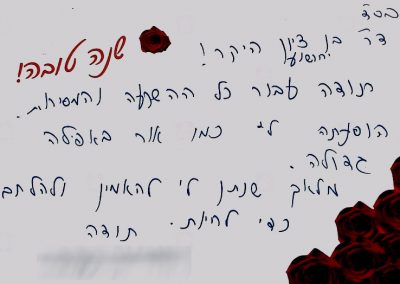 בסד
שנה טובה!
דר' בן ציון היקר!
יהושוע
תודה עבור כל ההשקעה והמסירות.
הופעתה לי כמו אור באפילה
גדולה.
מלאך שנתן לי להאמין ולהלחם
כדי לחיות. תודה